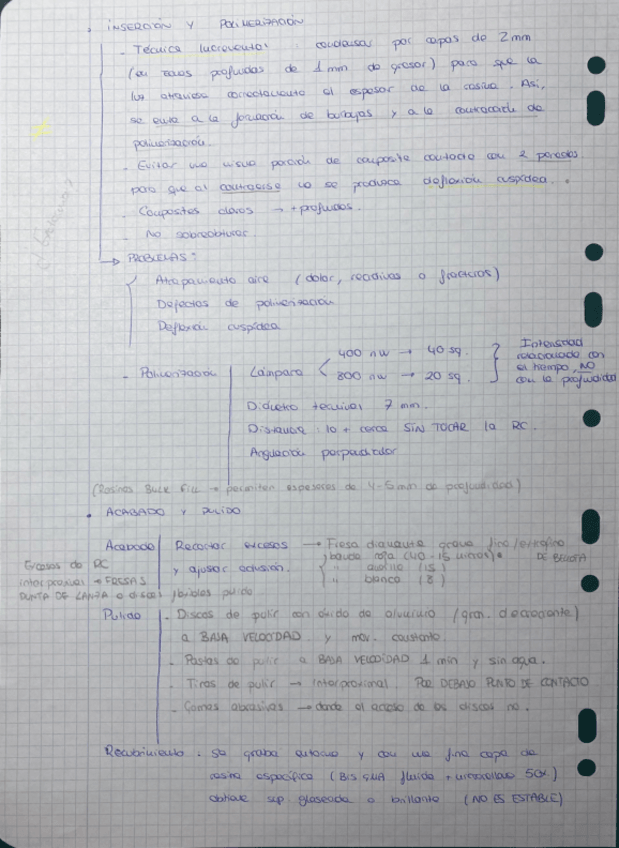 INSERCIÓN Y POLIMERIZACIÓN
- Técnica incremental: condensar por capas de 2 mm
(en zonas profundas de 1 mm de grosor) para que la
luz atraviese correctamente el espesor de la resina. Así,
se evita a la formación de burbujas y a la contracción de
polimerización.
- Evitar una misma porción de composite contacte con 2 paredes
para que al contraerse no se produzca deflexión cuspídea.
- Composites claros → + profundos.
- No sobreobturar.
→ PROBLEMAS:
Atrapamiento aire (dolor, recidivas o fracturas)
Defectos de polimerización
Deflexión cuspídea
- Polimerización
Lámpara
400 nw → 40 sg.
800 nw → 20 sg.
Intensidad
relacionada con
el tiempo, NO
con la profundidad
Diámetro terminal 7 mm.
Distancia: lo + cerca SIN TOCAR la RC.
Angulación perpendicular
(Resinas Bulk Fill → permiten espesores de 4-5 mm de profundidad)
• ACABADO Y PULIDO
Acabado
Recortar excesos → Fresa diamante grano fino/extrafino
y ajustar oclusión.
banda roja (40-15 micras)
DE BELLOTA
" (15)
" blanco (8)
Excesos de RC
interproximal → FRESAS
PUNTA DE LANZA o discos pulido
Pulido
- Discos de pulir con óxido de aluminio (gran. decreciente)
a BAJA VELOCIDAD y mov. constante.
- Pastas de pulir a BAJA VELOCIDAD 1 min y sin agua.
- Tiras de pulir → interproximal. POR DEBAJO PUNTO DE CONTACTO
- Gomas abrasivas → donde el acceso de los discos no.
Recubrimiento: se graba esmalte y con una fina capa de
resina específica (BIS GMA fluida + microrrelleno 50%)
obtiene sup glaseada o brillante (NO ES ESTABLE)